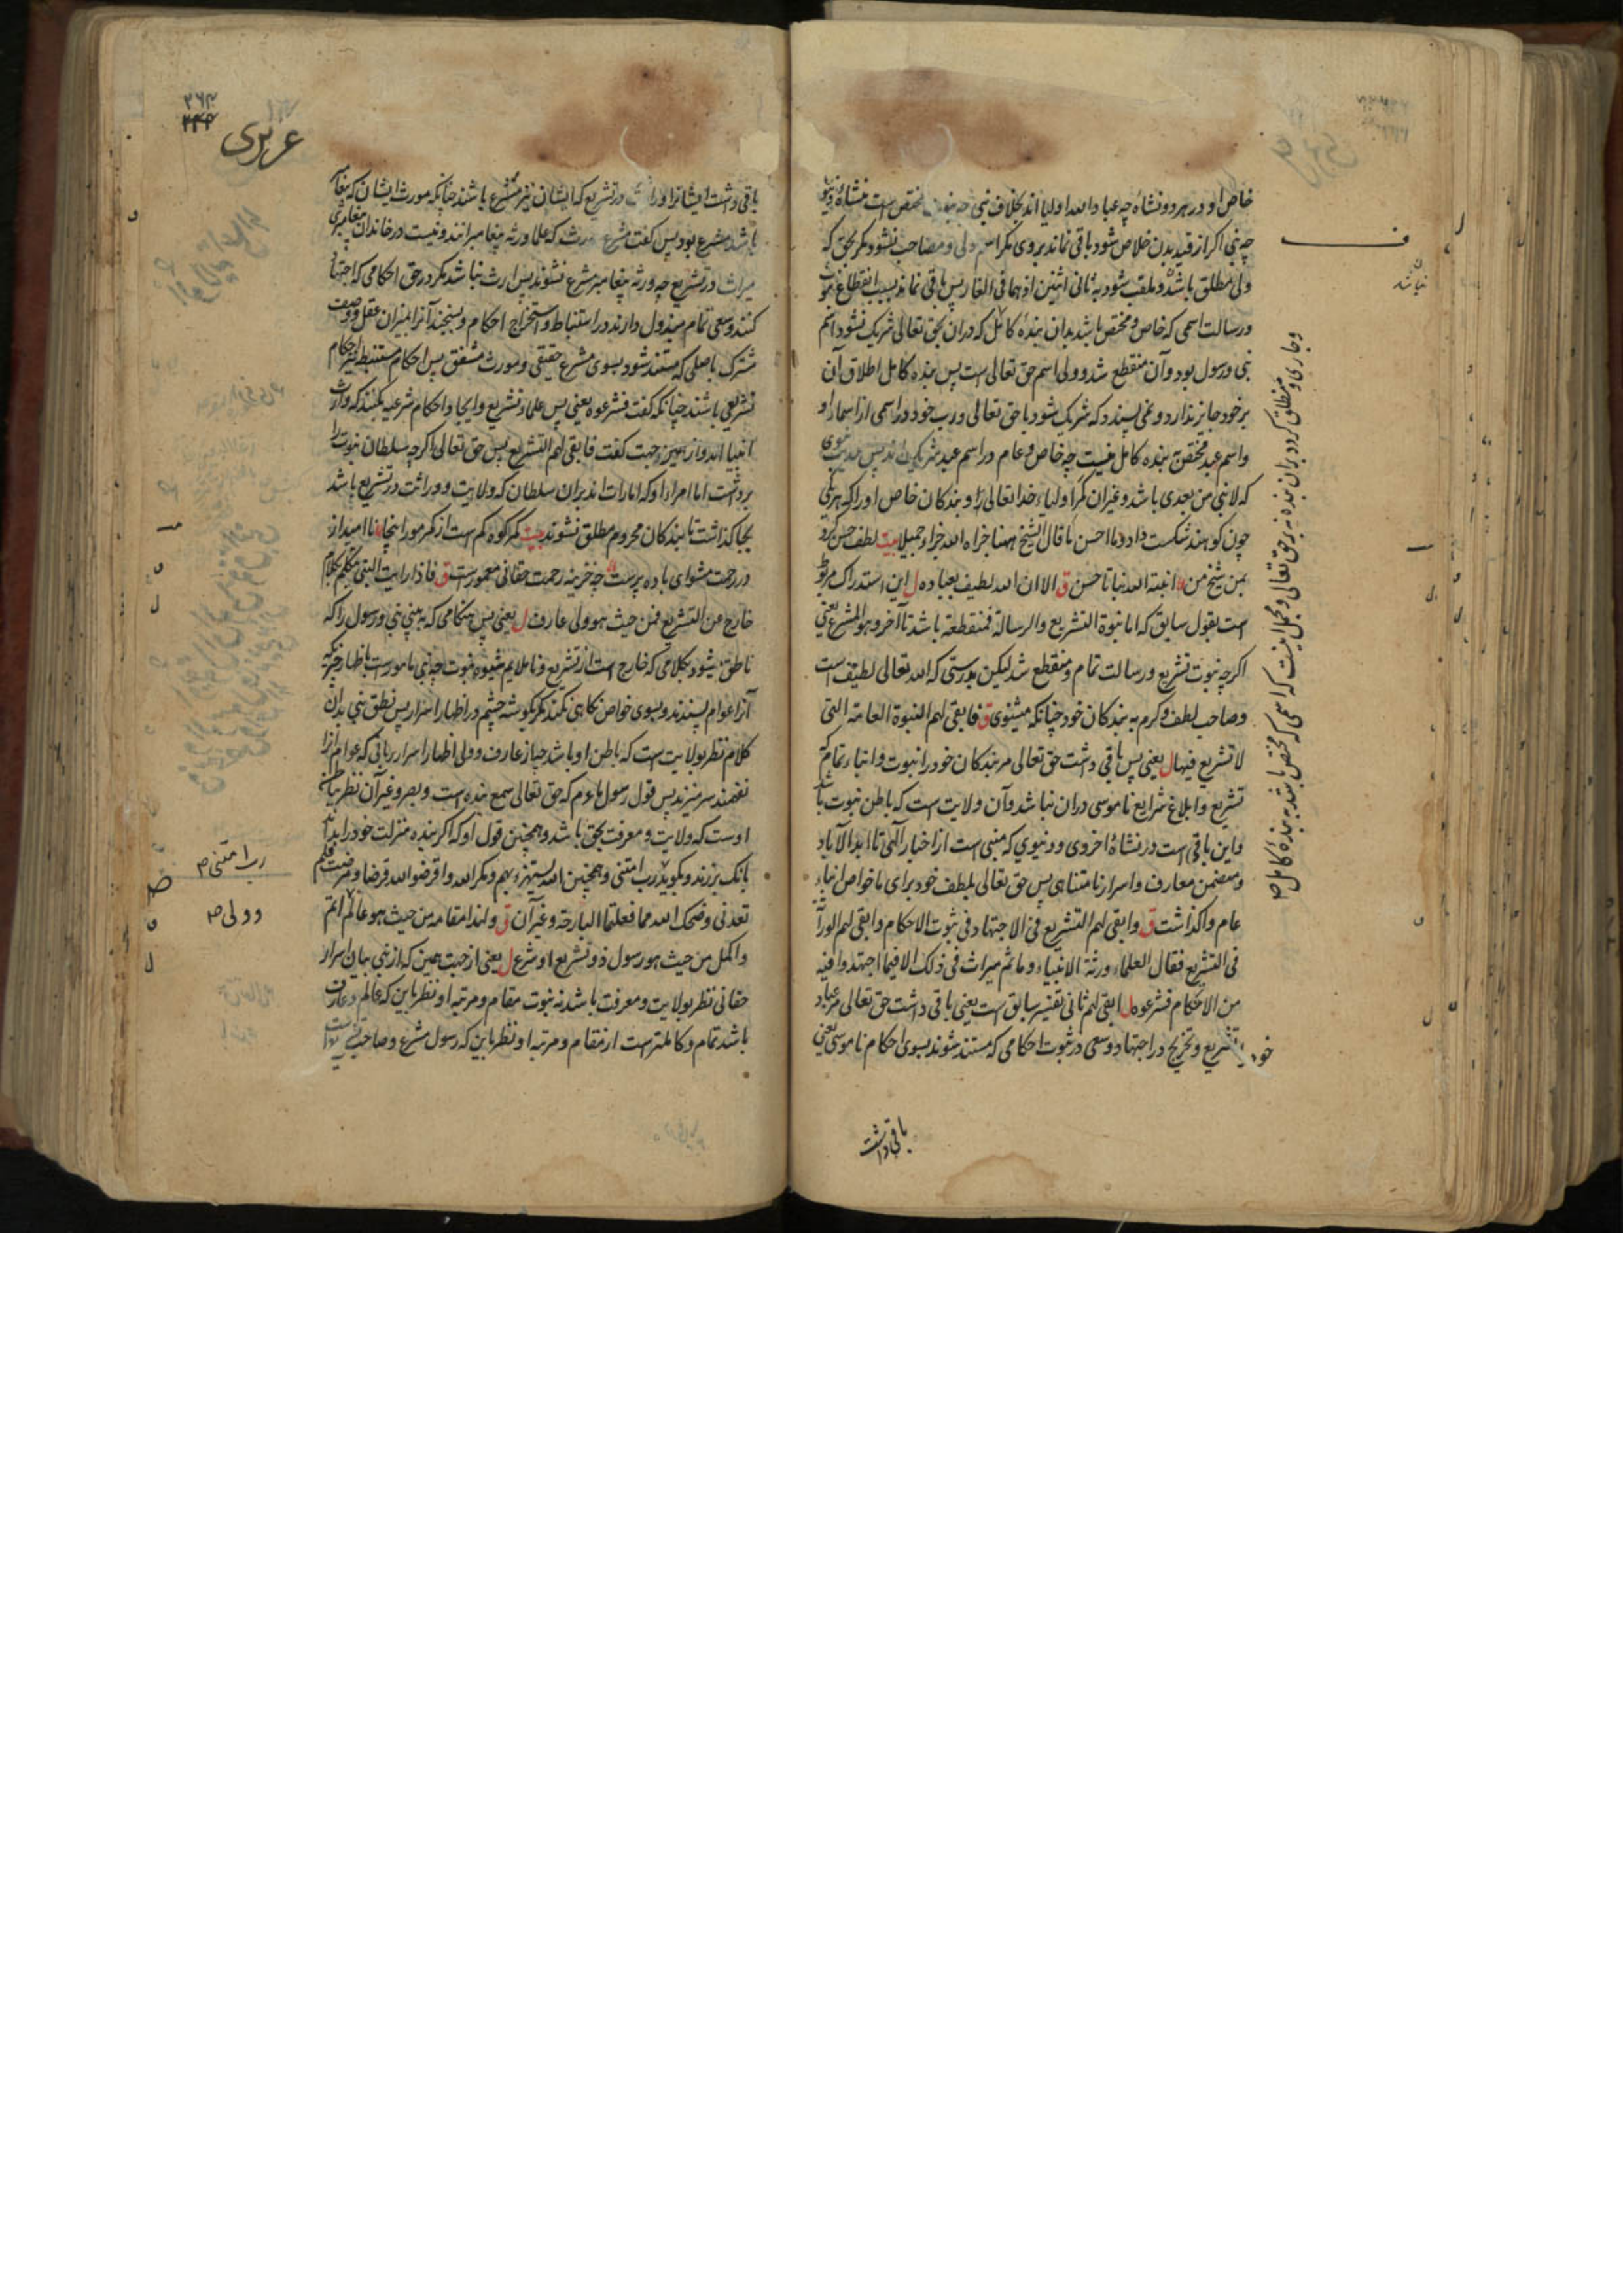 خاص او در هر دو نشاه چه عباد الله اولیا اند بخلاف نبی چه مختص است بنشاه
چه نبی اگر از قید بدن خلاص شود باقی نماند بروی مگر اسم ولی و مصاحب نشود مگر بحق که
ولی مطلق باشد و ملقب شود به ثانی اثنین اذ هما فی الغار پس باقی نماند بسبب انقطاع نبوت
و رسالت اسمی که خاص و مختص باشد بدان بنده کامل که دران بحق تعالی شریک نشود و اسم
نبی و رسول بود و آن منقطع شد و ولی اسم حق تعالی است پس بنده کامل اطلاق آن
بر خود جایز ندارد و نمی پسندد که شریک شود با حق تعالی و رب خود در اسمی از اسماء او
و اسم عبد مختص به بنده کامل نیست چه خاص و عام در اسم عبد شریک اند پس حدیث نبوی
که لا نبی من بعدی باشد و غیر آن کمر اولیاء خدا تعالی را و بندکان خاص او را که هر یکی
چون کوهند شکست داد و ما احسن ما قال الشیخ ههنا جزاه الله جزاء جمیلا بیت لطف حسن کرد
بمن شیخ من انبته الله نباتا حسن ق الا ان الله لطیف بعباده ل این استدراک مربوط
است بقول سابق که اما نبوة التشریع و الرسالة فمنقطعة باشد تا آخر و هو المشرع یعنی
اگرچه نبوت تشریع و رسالت تمام و منقطع شد لیکن بدرستی که الله تعالی لطیف است
و صاحب لطف و کرم به بندکان خود چنانکه میشنوی ق فابقی لهم النبوة العامة التی
لا تشریع فیها ل یعنی پس باقی داشت حق تعالی مر بندکان خود را نبوت و انباء تمام که
تشریع و ابلاغ شرایع ناموسی دران نباشد و آن ولایت است که باطن نبوت باشد
و این باقی است در نشاه اخروی و دنیوی که منبی است از اخبار الهی تا ابد الآباد
و متضمن معارف و اسرار نامتناهی پس حق تعالی بلطف خود برای ما خواص انباء
عام واکذاشت ق و ابقی لهم التشریع فی الاجتهاد فی ثبوت الاحکام و ابقی لهم الوراثة
فی التشریع فقال العلماء ورثة الانبیاء و ما ثم میراث فی ذلک الا فیما اجتهدوا فیه
من الاحکام فشرعوه ل ابقی لهم ثانی تفسیر سابق است یعنی باقی داشت حق تعالی مر عباد
خود را تشریع و تخریج در اجتهاد و سعی در ثبوت احکامی که مستند شوند بسوی احکام ناموسی یعنی
باقی داشت
ف
نباشد
و جاری و منطلق کرد بران بنده نه بر حق تعالی و مجمل اینست که اسمی که مختص باشد به بنده کامل
۲۶۴
عزیزی
باقی داشت ایشانرا وراثت در تشریع که ایشان نیز مشرع باشند چنانکه مورث ایشان که پیغامبر
باشد مشرع بود پس کفت مشرع که علما ورثه پیغامبرانند و نیست در خاندان پیغامبری
میراث در تشریع چه ورثه پیغامبر مشرع نشوند پس ارث نباشد مگر در حق احکامی که اجتهاد
کنند و سعی تمام مبذول دارند در استنباط و استخراج احکام و بسنجند آنرا بمیزان عقل و وصف
مشترک باصلی که مستند شود بسوی مشرع حقیقی و مورث مشفق پس احکام مستنبط نیز احکام
تشریعی باشند چنانکه کفت فشرعوه یعنی پس علماء تشریع و ایجاد احکام شرعیه بکنند که وارث
انبیا اند و از همین جهت کفت فابقی لهم التشریع پس حق تعالی اگرچه سلطان نبوت را
برداشت اما امراء او که امارات اند بران سلطان که ولایت و وراثت در تشریع باشد
بجا کذاشت تا بندکان محروم مطلق نشوند بیت کمر کوه کم است از کمر مور اینجا ناامید از
در رحمت مشو ای باده پرست چه خزینه رحمت حقانی معمور است ق فاذا رایت النبی یتکلم بکلام
خارج عن التشریع فمن حیث هو ولی عارف ل یعنی پس هنکامی که ببینی نبی و رسول را که
ناطق میشود بکلامی که خارج است از تشریع و ناملایم بشیوه نبوت چه نبی مامور است باظهار چیزیکه
آنرا عوام پسندند و بسوی خواص نکاهی نکند مگر بکوشه چشم در اظهار اسرار پس نطق نبی بدان
کلام نظر بولایت است که باطن او باشد چه از عارف و ولی اظهار اسرار ربانی که عوام آنرا
نفهمند سر میزند پس قول رسول ما ءم که حق تعالی سمع بنده است و بصر و غیر آن نظر بباطن
اوست که ولایت و معرفت بحق باشد و همچنین قول او که اگر بنده منزلت خود را بداند
بانک برزند و بکوید رب امتنی و همچنین الله یستهزء بهم و مکر الله و اقرضوا الله قرضا و مرضت فلم
تعدنی و ضحک الله مما فعلتما البارحة و غیر آن ق و لهذا مقامه من حیث هو عالم اتم
و اکمل من حیث هو رسول ذو تشریع او شرع ل یعنی از جهت همین که از نبی بیان اسرار
حقانی نظر بولایت و معرفت باشد نه نبوت مقام و مرتبه او نظر باین که عالم و عارف
باشد تمام و کاملتر است از مقام و مرتبه او نظر باین که رسول مشرع و صاحب
رب امتنی
و ولی